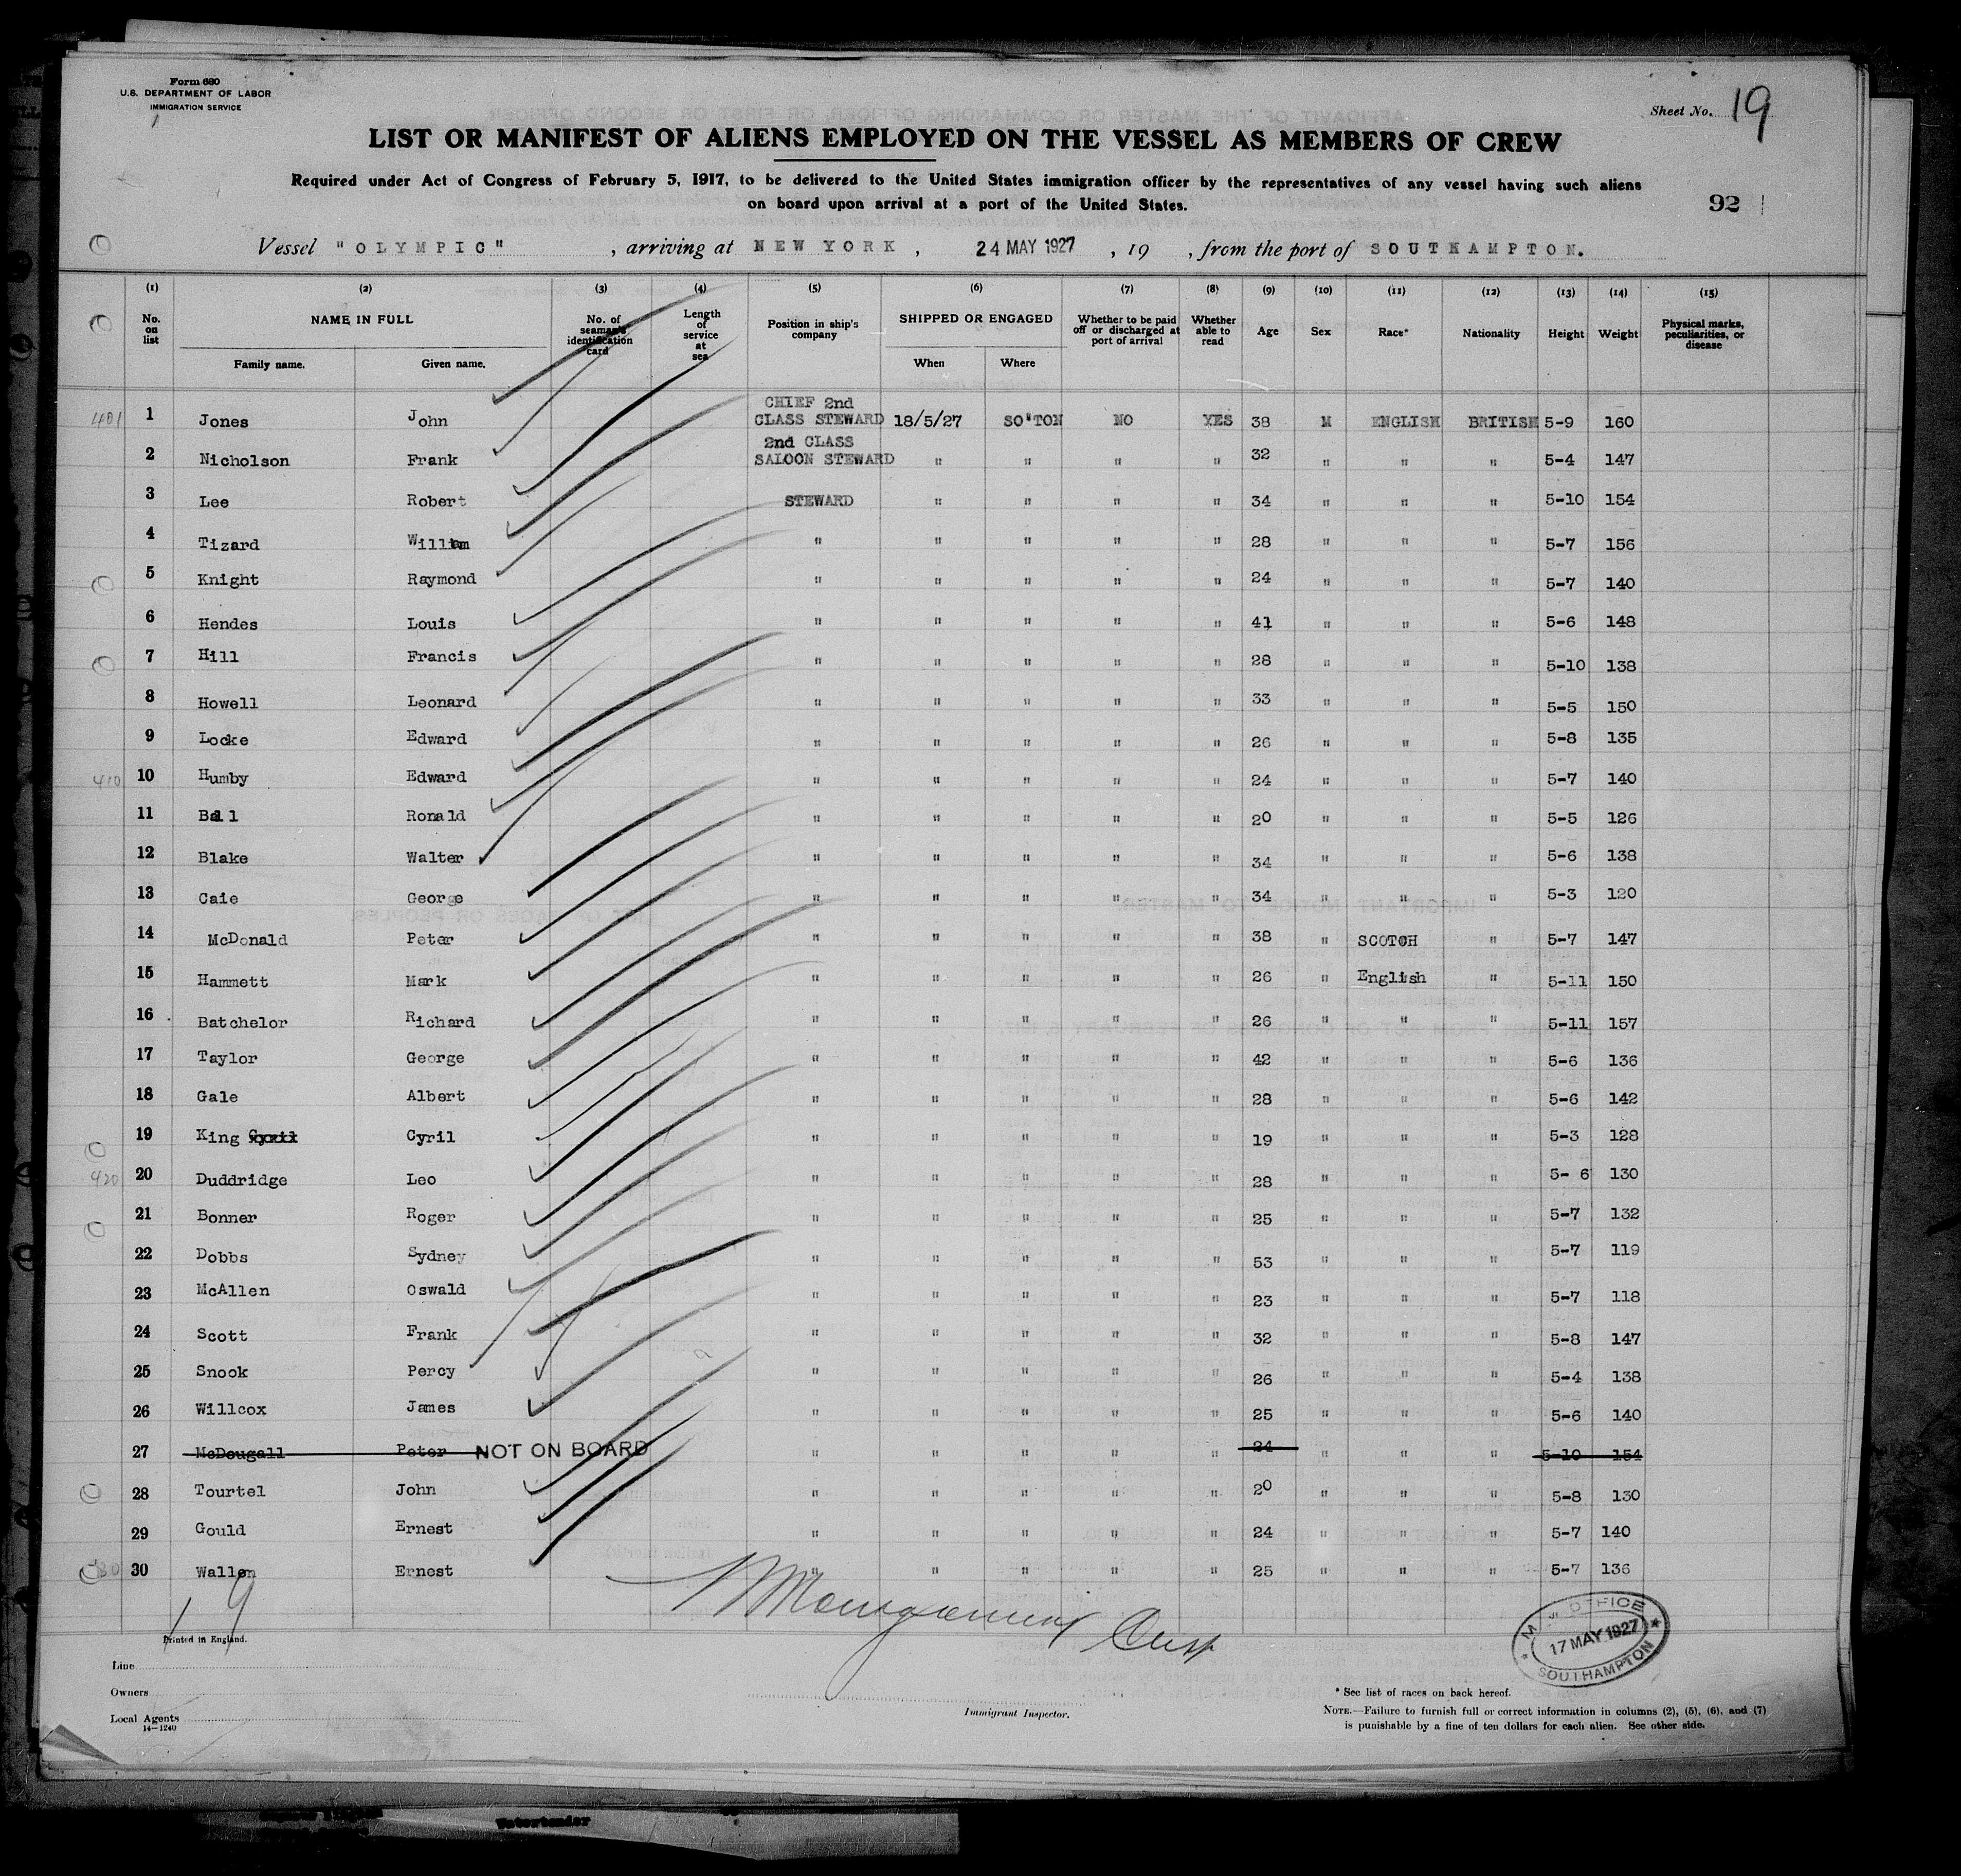 Form 680
U.S. DEPARTMENT OF LABOR
IMMIGRATION SERVICE
Sheet No. 19
LIST OR MANIFEST OF ALIENS EMPLOYED ON THE VESSEL AS MEMBERS OF CREW
Required under Act of Congress of February 5, 1917, to be delivered to the United States immigration officer by the representatives of any vessel having such aliens
on board upon arrival at a port of the United States.
92
Vessel "OLYMPIC", arriving at NEW YORK, 24 MAY 1927, 19 , from the port of SOUTHAMPTON.
(1) (2) (3) (4) (5) (6) (7) (8) (9) (10) (11) (12) (13) (14) (15)
No. on list NAME IN FULL No. of seaman's identification card Length of service at sea Position in ship's company SHIPPED OR ENGAGED Whether to be paid off or discharged at port of arrival Whether able to read Age Sex Race* Nationality Height Weight Physical marks, peculiarities, or disease
Family name. Given name. When Where
401 1 Jones John CHIEF 2nd CLASS STEWARD 18/5/27 SO'TON NO YES 38 M ENGLISH BRITISH 5-9 160
2 Nicholson Frank 2nd CLASS SALOON STEWARD " " " " 32 " " " 5-4 147
3 Lee Robert STEWARD " " " " 34 " " " 5-10 154
4 Tizard William " " " " " 28 " " " 5-7 156
5 Knight Raymond " " " " " 24 " " " 5-7 140
6 Hendes Louis " " " " " 41 " " " 5-6 148
7 Hill Francis " " " " " 28 " " " 5-10 138
8 Howell Leonard " " " " " 33 " " " 5-5 150
9 Locke Edward " " " " " 26 " " " 5-8 135
410 10 Humby Edward " " " " " 24 " " " 5-7 140
11 Ball Ronald " " " " " 20 " " " 5-5 126
12 Blake Walter " " " " " 34 " " " 5-6 138
13 Caie George " " " " " 34 " " " 5-3 120
14 McDonald Peter " " " " " 38 " SCOTCH " 5-7 147
15 Hammett Mark " " " " " 26 " English " 5-11 150
16 Batchelor Richard " " " " " 26 " " " 5-11 157
17 Taylor George " " " " " 42 " " " 5-6 136
18 Gale Albert " " " " " 28 " " " 5-6 142
19 King Cyril Cyril " " " " " 19 " " " 5-3 128
420 20 Duddridge Leo " " " " " 28 " " " 5- 6 130
21 Bonner Roger " " " " " 25 " " " 5-7 132
22 Dobbs Sydney " " " " " 53 " " " 5-7 119
23 McAllen Oswald " " " " " 23 " " " 5-7 118
24 Scott Frank " " " " " 32 " " " 5-8 147
25 Snook Percy " " " " " 26 " " " 5-4 138
26 Willcox James " " " " " 25 " " " 5-6 140
27 McDougall Peter NOT ON BOARD " " " " " 24 " " " 5-10 154
28 Tourtel John " " " " " 20 " " " 5-8 130
29 Gould Ernest " " " " " 24 " " " 5-7 140
30 Wallen Ernest " " " " " 25 " " " 5-7 136
19
Printed in England.
OFFICE
17 MAY 1927
SOUTHAMPTON
Line
Owners
Local Agents
14-1240
Immigrant Inspector.
* See list of races on back hereof.
NOTE.—Failure to furnish full or correct information in columns (2), (5), (6), and (7)
is punishable by a fine of ten dollars for each alien. See other side.
Watertender